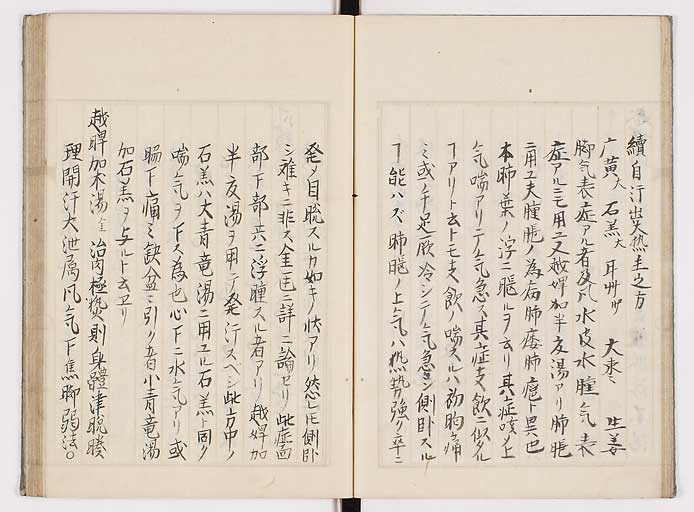 續自汗出大熱主之方
广黄大 石羔大 耳艸 大棗 生姜
脚气表症アル者及凡水皮水腫气表
症アルニモ用ユ又越婢加半夏湯アリ肺脹
二用ユ夫腫脹ノ為病肺痿肺癰ト異也
本肺葉ノ浮ニ脹ルヲ云リ其症咳上
气喘アリテ气急ス其症支飲ニ似タル
ヿアリト云トモ支飲ノ喘スルハ初胸痛
ミ或ハ手足厥冷シシテ气急シ側卧スル
ヿ能ハズ肺脹ノ上气ハ热勢強ク卒ニ
発メ目脱スルカ如キノ状アリ然レ圧側卧
シ難キニ非ス金匱ニ詳ニ論セリ此症面
部下部共ニ浮腫スル者アリ越婢加
半夏湯ヲ用テ発汗スベシ此方中ノ
石羔ハ大青竜湯ニ用ユル石羔ト同ク
喘气ヲ下ス為也心下ニ水气アリ或
腸下痛ミ缺盆ニ引ク者小青竜湯
加石羔ヲ与ルト云ヘリ
越婢加朮湯 治肉極热則身體津脱腠
理開汗大泄属风气下焦脚弱法